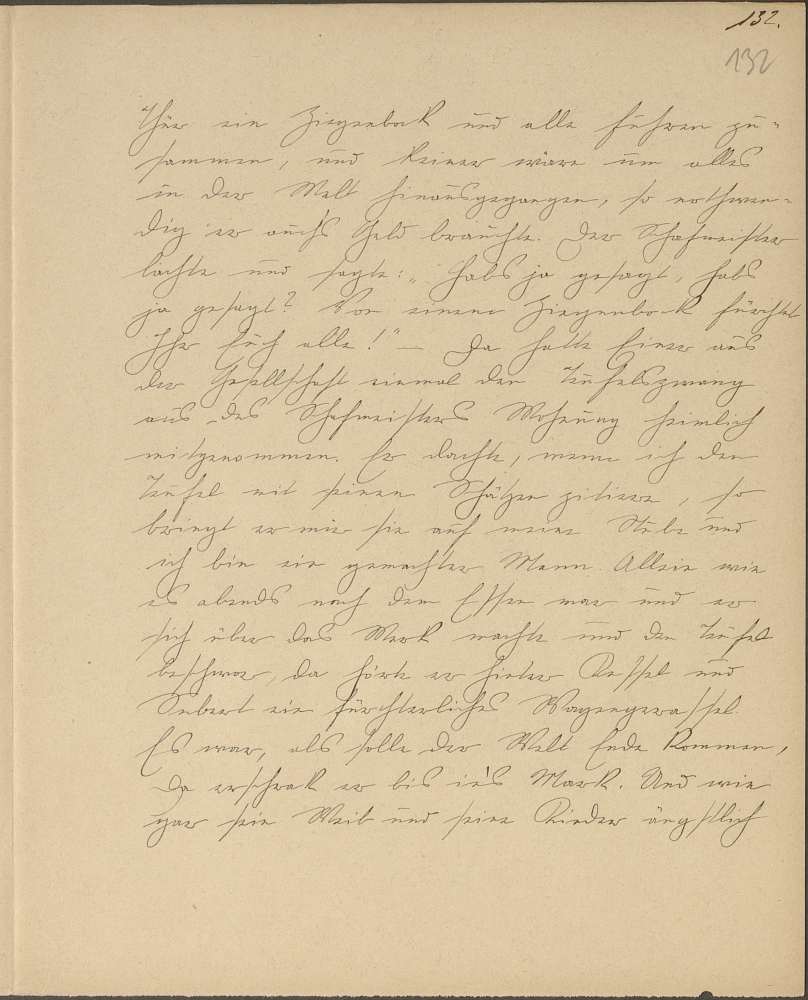 132.
132
Thür ein Ziegenbock und alle fuhren zu=
sammen, und keiner wäre um alles
in der Welt hinausgegangen, so nothwen=
dig er auch's Geld brauchte. Der Schafmeister
lachte und sagte: „Habs ja gesagt, habs
ja gesagt? Vor einem Ziegenbock fürchtet
Ihr Euch alle!" — Da hatte Einer aus
der Gesellschaft einmal den Teufelszwang
aus des Schafmeisters Wohnung heimlich
mitgenommen. Er dachte, wenn ich den
Teufel mit seinen Schätzen zitiere, so
bringt er mir sie auf meine Stube und
ich bin ein gemachter Mann. Allein wie
es abends nach dem Essen war und er
sich über das Werk machte und den Teufel
beschwor, da hörte er hinter Kessel und
Seibert ein fürchterliches Wagengerassel.
Es war, als solle der Welt Ende kommen,
da erschrak er bis in's Mark. Und wie
gar sein Weib und seine Kinder ängstlich